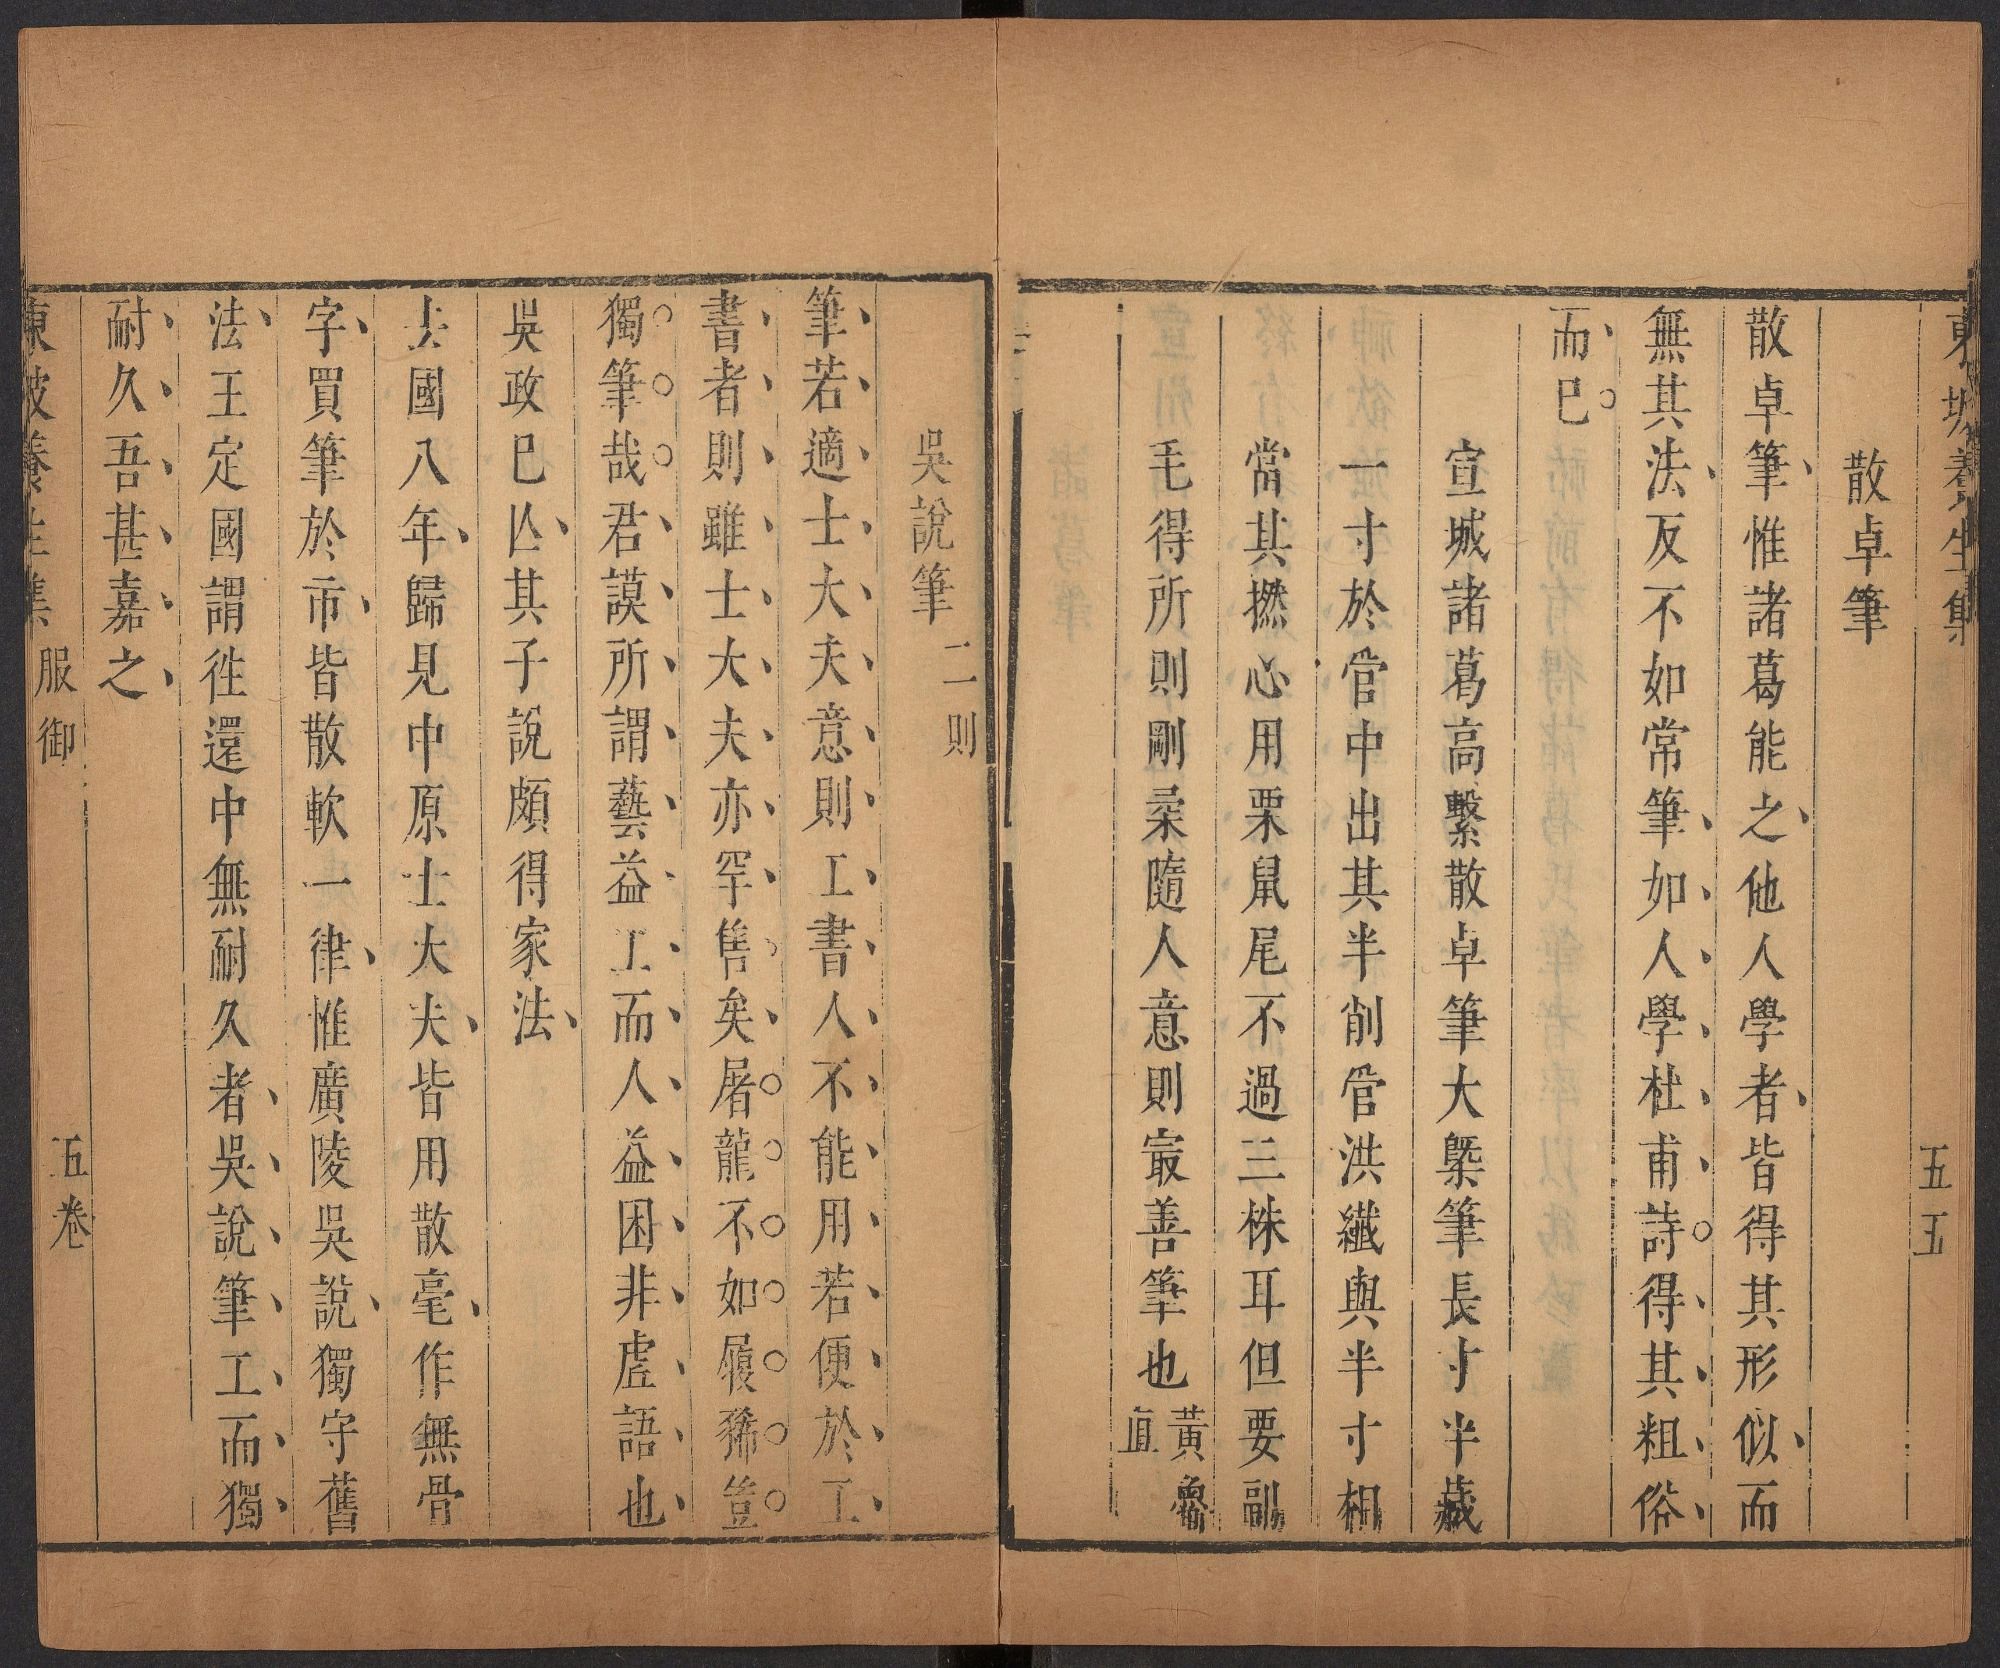 東坡養生集
五五
散卓筆
散卓筆惟諸葛能之他人學者皆得其形似而
無其法反不如常筆如人學杜甫詩得其粗俗
而已
宣城諸葛高繫散卓筆大槩筆長寸半藏
一寸於管中出其半削管洪纖與半寸相
當其撚心用栗鼠尾不過三株耳但要副
毛得所則剛柔隨人意則㝡善筆也黃魯
直
吳說筆二則
筆若適士大夫意則工書人不能用若便於工
書者則雖士大夫亦罕售矣屠龍不如履豨豈
獨筆哉君謨所謂藝益工而人益困非虛語也
吳政已亾其子說頗得家法
去國八年歸見中原士大夫皆用散毫作無骨
字買筆於市皆散軟一律惟廣陵吳說獨守舊
法王定國謂徃還中無耐久者吳說筆工而獨
耐久吾甚嘉之
東坡養生集服御
五卷